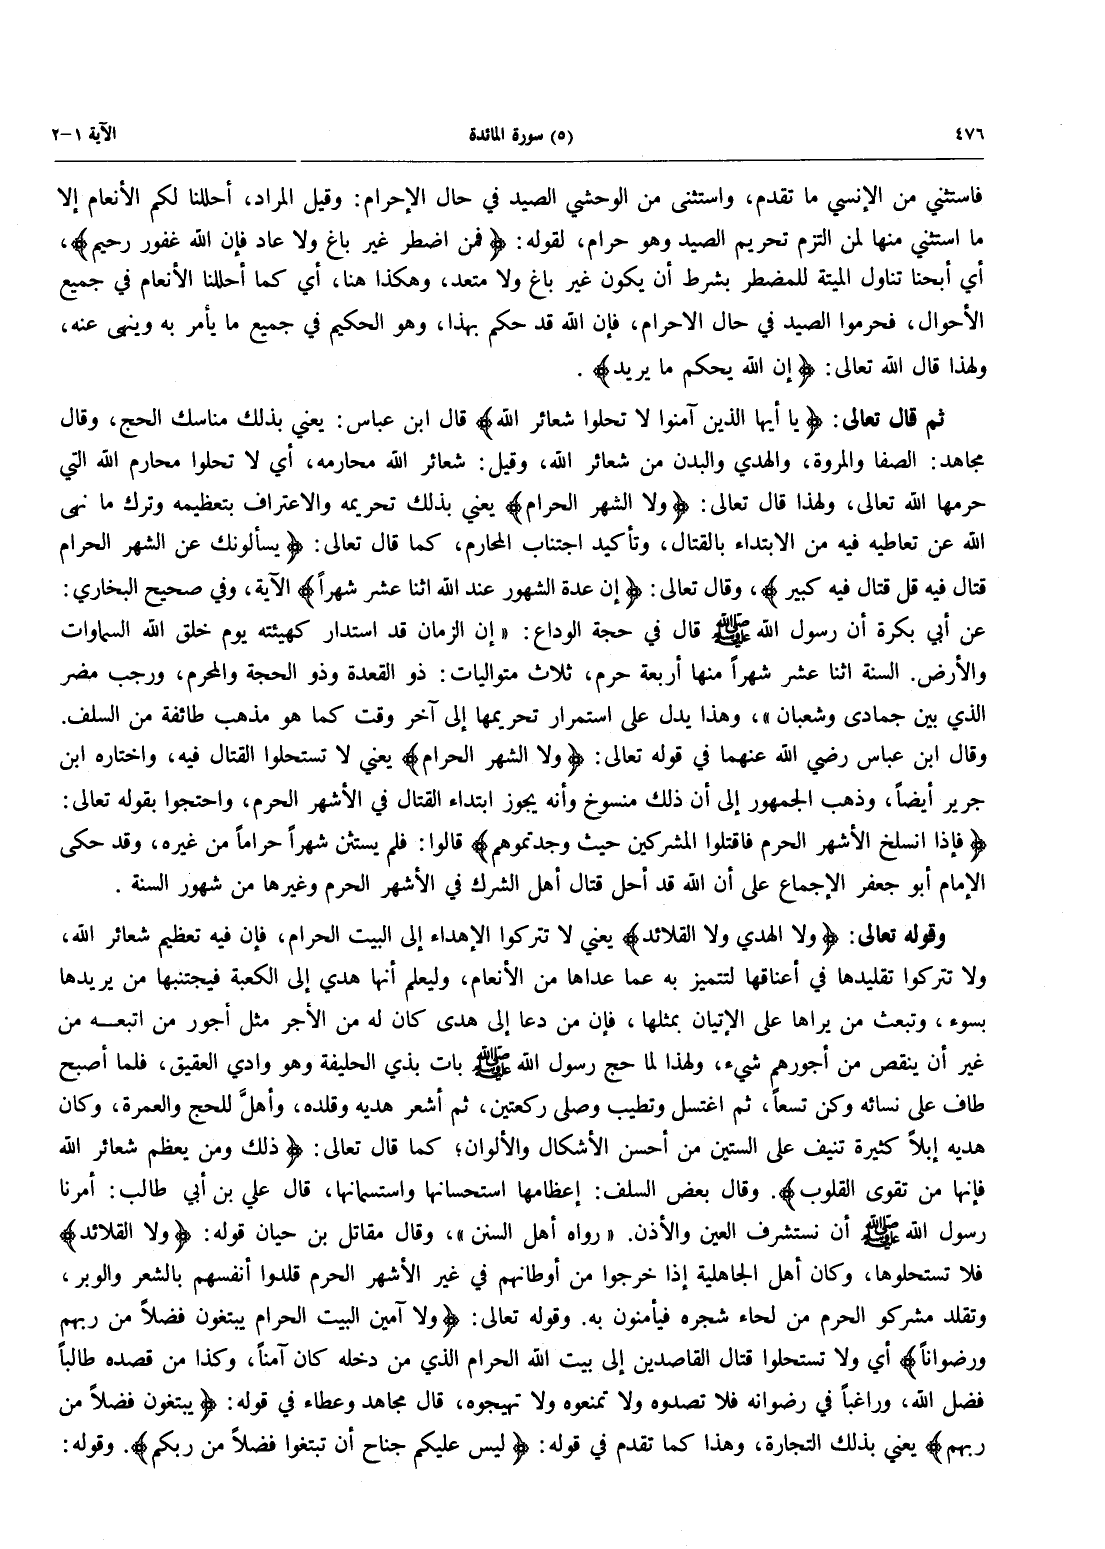 ٤٧٦ (٥) سورة المائدة الآية ١-٢
فاستثني من الإنسي ما تقدم، واستثنى من الوحشي الصيد في حال الإحرام: وقيل المراد، أحللنا لكم الأنعام إلا
ما استثني منها لمن التزم تحريم الصيد وهو حرام، لقوله: ﴿فمن اضطر غير باغ ولا عاد فإن الله غفور رحيم﴾،
أي أبحنا تناول الميتة للمضطر بشرط أن يكون غير باغ ولا متعد، وهكذا هنا، أي كما أحللنا الأنعام في جميع
الأحوال، فحرموا الصيد في حال الاحرام، فإن الله قد حكم بهذا، وهو الحكيم في جميع ما يأمر به وينهى عنه،
ولهذا قال الله تعالى: ﴿إن الله يحكم ما يريد﴾ .
ثم قال تعالى: ﴿يا أيها الذين آمنوا لا تحلوا شعائر الله﴾ قال ابن عباس: يعني بذلك مناسك الحج، وقال
مجاهد: الصفا والمروة، والهدي والبدن من شعائر الله، وقيل: شعائر الله محارمه، أي لا تحلوا محارم الله التي
حرمها الله تعالى، ولهذا قال تعالى: ﴿ولا الشهر الحرام﴾ يعني بذلك تحريمه والاعتراف بتعظيمه وترك ما نهى
الله عن تعاطيه فيه من الابتداء بالقتال، وتأكيد اجتناب المحارم، كما قال تعالى: ﴿يسألونك عن الشهر الحرام
قتال فيه قل قتال فيه كبير﴾، وقال تعالى: ﴿إن عدة الشهور عند الله اثنا عشر شهراً﴾ الآية، وفي صحيح البخاري:
عن أبي بكرة أن رسول الله ﷺ قال في حجة الوداع: «إن الزمان قد استدار كهيئته يوم خلق الله السماوات
والأرض. السنة اثنا عشر شهراً منها أربعة حرم، ثلاث متواليات: ذو القعدة وذو الحجة والمحرم، ورجب مضر
الذي بين جمادى وشعبان»، وهذا يدل على استمرار تحريمها إلى آخر وقت كما هو مذهب طائفة من السلف.
وقال ابن عباس رضي الله عنهما في قوله تعالى: ﴿ولا الشهر الحرام﴾ يعني لا تستحلوا القتال فيه، واختاره ابن
جرير أيضاً، وذهب الجمهور إلى أن ذلك منسوخ وأنه يجوز ابتداء القتال في الأشهر الحرم، واحتجوا بقوله تعالى:
﴿فإذا انسلخ الأشهر الحرم فاقتلوا المشركين حيث وجدتموهم﴾ قالوا: فلم يستثن شهراً حراماً من غيره، وقد حكى
الإمام أبو جعفر الإجماع على أن الله قد أحل قتال أهل الشرك في الأشهر الحرم وغيرها من شهور السنة .
وقوله تعالى: ﴿ولا الهدي ولا القلائد﴾ يعني لا تتركوا الإهداء إلى البيت الحرام، فإن فيه تعظيم شعائر الله،
ولا تتركوا تقليدها في أعناقها لتتميز به عما عداها من الأنعام، وليعلم أنها هدي إلى الكعبة فيجتنبها من يريدها
بسوء، وتبعث من يراها على الإتيان بمثلها، فإن من دعا إلى هدى كان له من الأجر مثل أجور من اتبعـــه من
غير أن ينقص من أجورهم شيء، ولهذا لما حج رسول الله ﷺ بات بذي الحليفة وهو وادي العقيق، فلما أصبح
طاف على نسائه وكن تسعاً، ثم اغتسل وتطيب وصلى ركعتين، ثم أشعر هديه وقلده، وأهلَّ للحج والعمرة، وكان
هديه إبلاً كثيرة تنيف على الستين من أحسن الأشكال والألوان؛ كما قال تعالى: ﴿ذلك ومن يعظم شعائر الله
فإنها من تقوى القلوب﴾. وقال بعض السلف: إعظامها استحسانها واستسمانها، قال علي بن أبي طالب: أمرنا
رسول الله ﷺ أن نستشرف العين والأذن. «رواه أهل السنن»، وقال مقاتل بن حيان قوله: ﴿ولا القلائد﴾
فلا تستحلوها، وكان أهل الجاهلية إذا خرجوا من أوطانهم في غير الأشهر الحرم قلدوا أنفسهم بالشعر والوبر،
وتقلد مشركو الحرم من لحاء شجره فيأمنون به. وقوله تعالى: ﴿ولا آمين البيت الحرام يبتغون فضلاً من ربهم
ورضواناً﴾ أي ولا تستحلوا قتال القاصدين إلى بيت الله الحرام الذي من دخله كان آمناً، وكذا من قصده طالباً
فضل الله، وراغباً في رضوانه فلا تصدوه ولا تمنعوه ولا تهيجوه، قال مجاهد وعطاء في قوله: ﴿يبتغون فضلاً من
ربهم﴾ يعني بذلك التجارة، وهذا كما تقدم في قوله: ﴿ليس عليكم جناح أن تبتغوا فضلاً من ربكم﴾. وقوله: